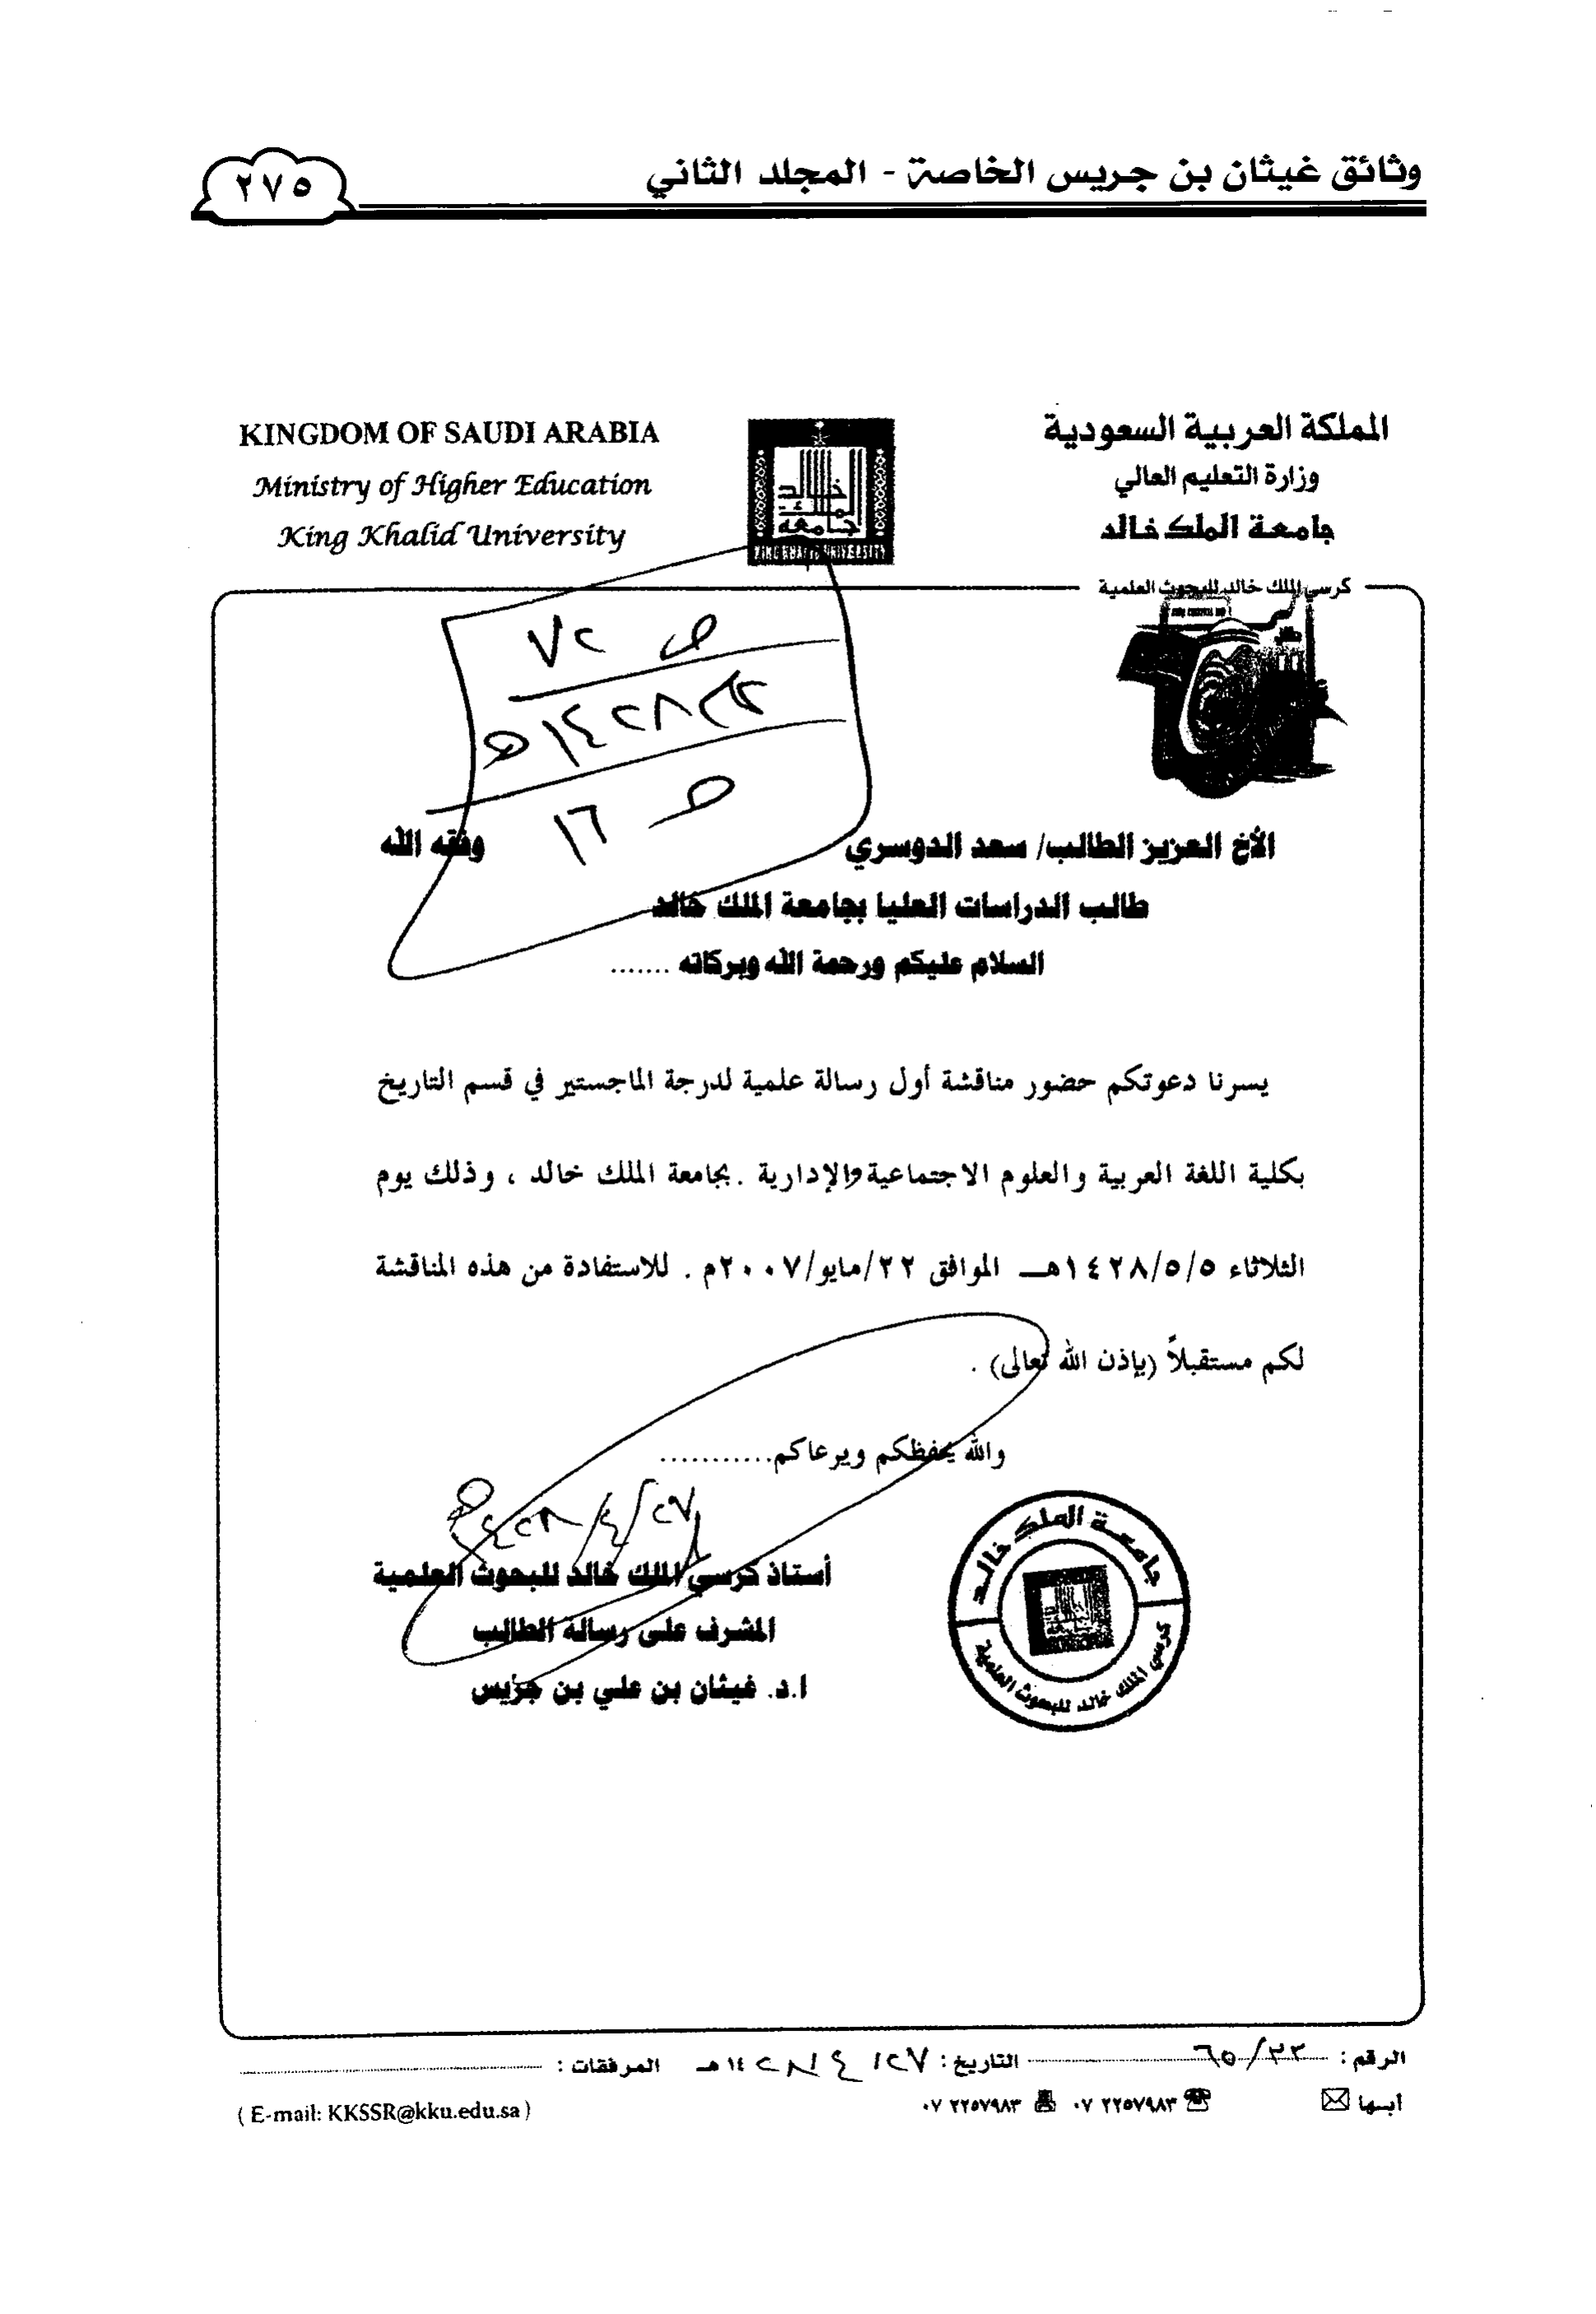 وثائق غيثان بن جريس الخاصة - المجلد الثاني
٢٧٥
المملكة العربية السعودية
وزارة التعليم العالي
جامعة الملك خالد
KINGDOM OF SAUDI ARABIA
Ministry of Higher Education
King Khalid University
جامعة الملك خالد
KING KHALID UNIVERSITY
كرسي الملك خالد للبحوث العلمية
ص ٢٧
١٤٢٨هـ
ص ١٦
الأخ العزيز الطالب/ سعد الدوسري وفقه الله
طالب الدراسات العليا بجامعة الملك خالد
السلام عليكم ورحمة الله وبركاته .......
يسرنا دعوتكم حضور مناقشة أول رسالة علمية لدرجة الماجستير في قسم التاريخ
بكلية اللغة العربية والعلوم الاجتماعية والإدارية . بجامعة الملك خالد ، وذلك يوم
الثلاثاء ١٤٢٨/٥/٥هـ الموافق ٢٢/مايو/٢٠٠٧م . للاستفادة من هذه المناقشة
لكم مستقبلاً (بإذن الله تعالى) .
والله يحفظكم ويرعاكم...........
٢٧/٤/١٤٢٨هـ
أستاذ كرسي الملك خالد للبحوث العلمية
المشرف على رسالة الطالب
ا.د. غيثان بن علي بن جريس
جامعة الملك خالد
كرسي الملك خالد للبحوث العلمية
الرقم : ٦٥/٢٣ التاريخ : ٢٧/ ٤/ ١٤٢٨هـ المرفقات :
أبها ٠٧ ٢٢٥٧٩٨٣ ٠٧ ٢٢٥٧٩٨٣ ( E-mail: KKSSR@kku.edu.sa )